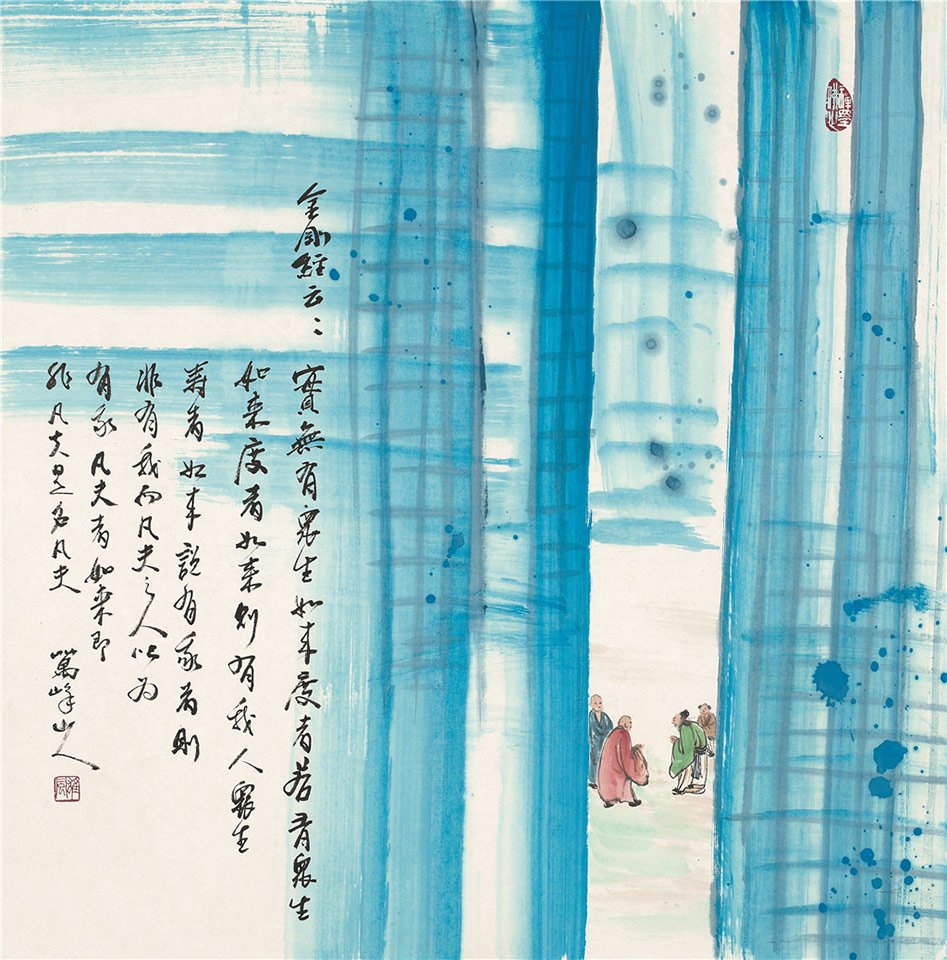 金剛經云〻實無有眾生如來度者若有眾生
如來度者如來則有我人眾生
壽者如來說有我者則
非有我而凡夫之人以為
有我凡夫者如來即
非凡夫是名凡夫 萬峰山人